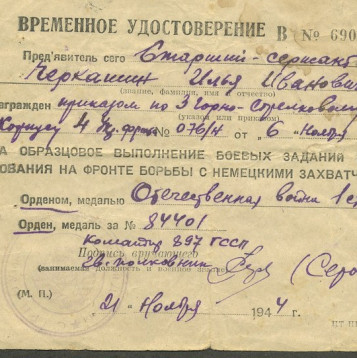 ВРЕМЕННОЕ УДОСТОВЕРЕНИЕ В № 690
Пред'явитель сего Старший-сержант
Черкашин Илья Иванович
(звание, фамилия, имя и отчество)
награжден приказом по 3 Горно-Стрелковому
(указом или приказом)
Корпусу 4 № 076/н от „6 Ноября
А ОБРАЗЦОВОЕ ВЫПОЛНЕНИЕ БОЕВЫХ ЗАДАНИЙ
ОВАНИЯ НА ФРОНТЕ БОРЬБЫ С НЕМЕЦКИМИ ЗАХВАТЧ
Орденом, медалью Отечественная война 1 с
Орден, медаль за № 84401
Командир 897 ГССП
Подпись вручающего
Гв. полковник (Серо
(занимаемая должность и военное
(М. П.) „21 Ноября 1944 г.